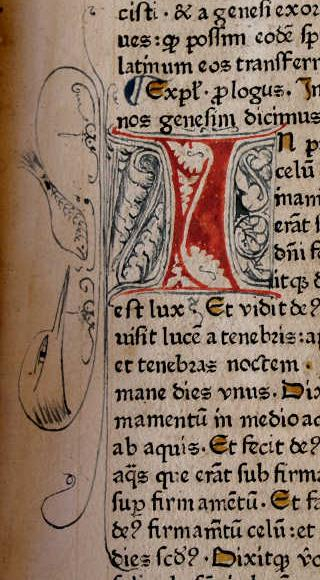 cisti · & a genesi exor
ues: ꝙ possim eodē sp
latinum eos transferr
Explꝰ · ꝓlogus · In
nos genesim dicimus
IN p
celū
inani
erāt s
dn̄i fe
itqꝫ d
est lux · Et vidit de9
visit lucē a tenebris: ap
et tenebras noctem ·
mane dies vnus · Dix
mamentū in medio aq
ab aquis · Et fecit de9
aq̄s que erāt sub firma
sup firmamētū · Et fa
de9 firmam̄tū celū: et
dies scd9 · Dixitqꝫ vo